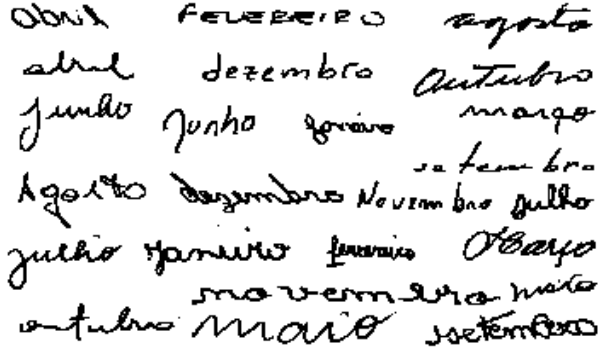 abril FEVEREIRO agosto
abril dezembro outubro
junho junho janeiro março
setembro
Agosto dezembro Novembro julho
julho Janeiro fevereiro Março
novembro maio
outubro maio setembro